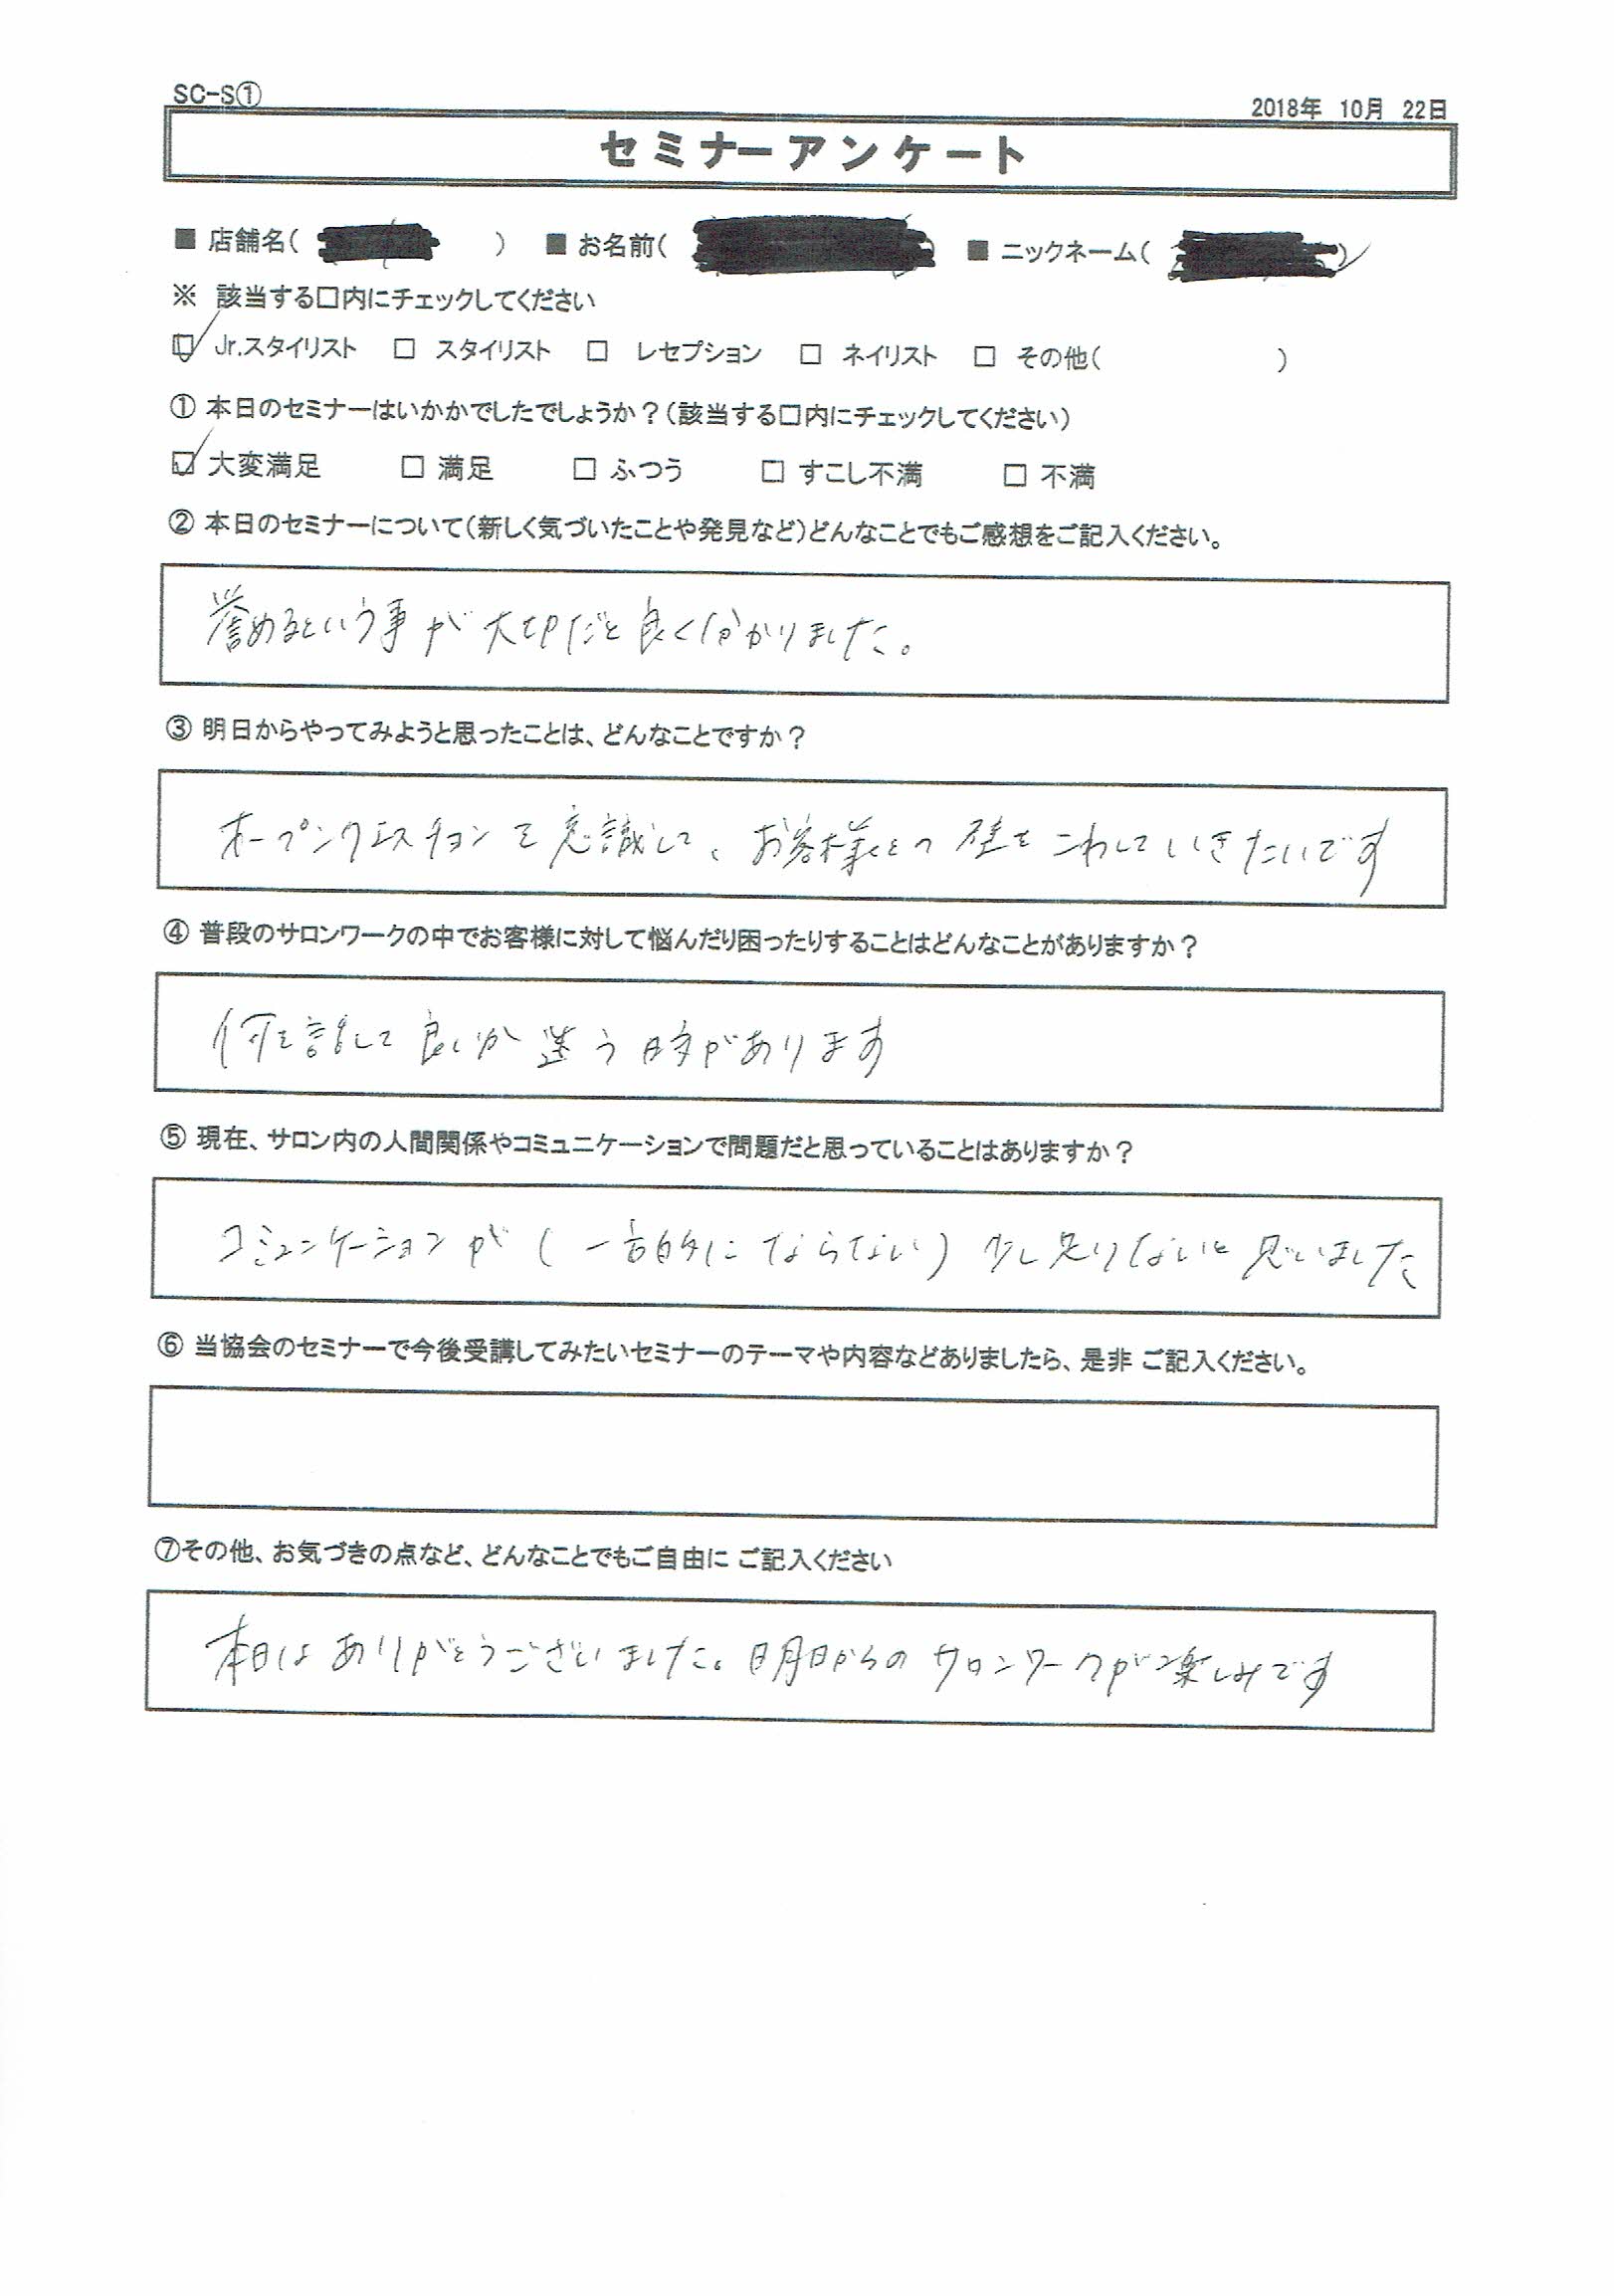 SC-S①
2018年 10月 22日
セミナーアンケート
■ 店舗名( ) ■ お名前( ) ■ ニックネーム( )
※ 該当する□内にチェックしてください
☑ Jr.スタイリスト □ スタイリスト □ レセプション □ ネイリスト □ その他( )
① 本日のセミナーはいかかでしたでしょうか？(該当する□内にチェックしてください)
☑ 大変満足 □ 満足 □ ふつう □ すこし不満 □ 不満
② 本日のセミナーについて(新しく気づいたことや発見など)どんなことでもご感想をご記入ください。
誉めるという事が大切だと良く分かりました。
③ 明日からやってみようと思ったことは、どんなことですか？
オープンクエスチョンを意識して、お客様との壁をこわしていきたいです
④ 普段のサロンワークの中でお客様に対して悩んだり困ったりすることはどんなことがありますか？
何を話して良いか迷う時があります
⑤ 現在、サロン内の人間関係やコミュニケーションで問題だと思っていることはありますか？
コミュニケーションが(一言的にならない)少し足りないと思いました
⑥ 当協会のセミナーで今後受講してみたいセミナーのテーマや内容などありましたら、是非 ご記入ください。
⑦その他、お気づきの点など、どんなことでもご自由に ご記入ください
本日はありがとうございました。明日からのサロンワークが楽しみです